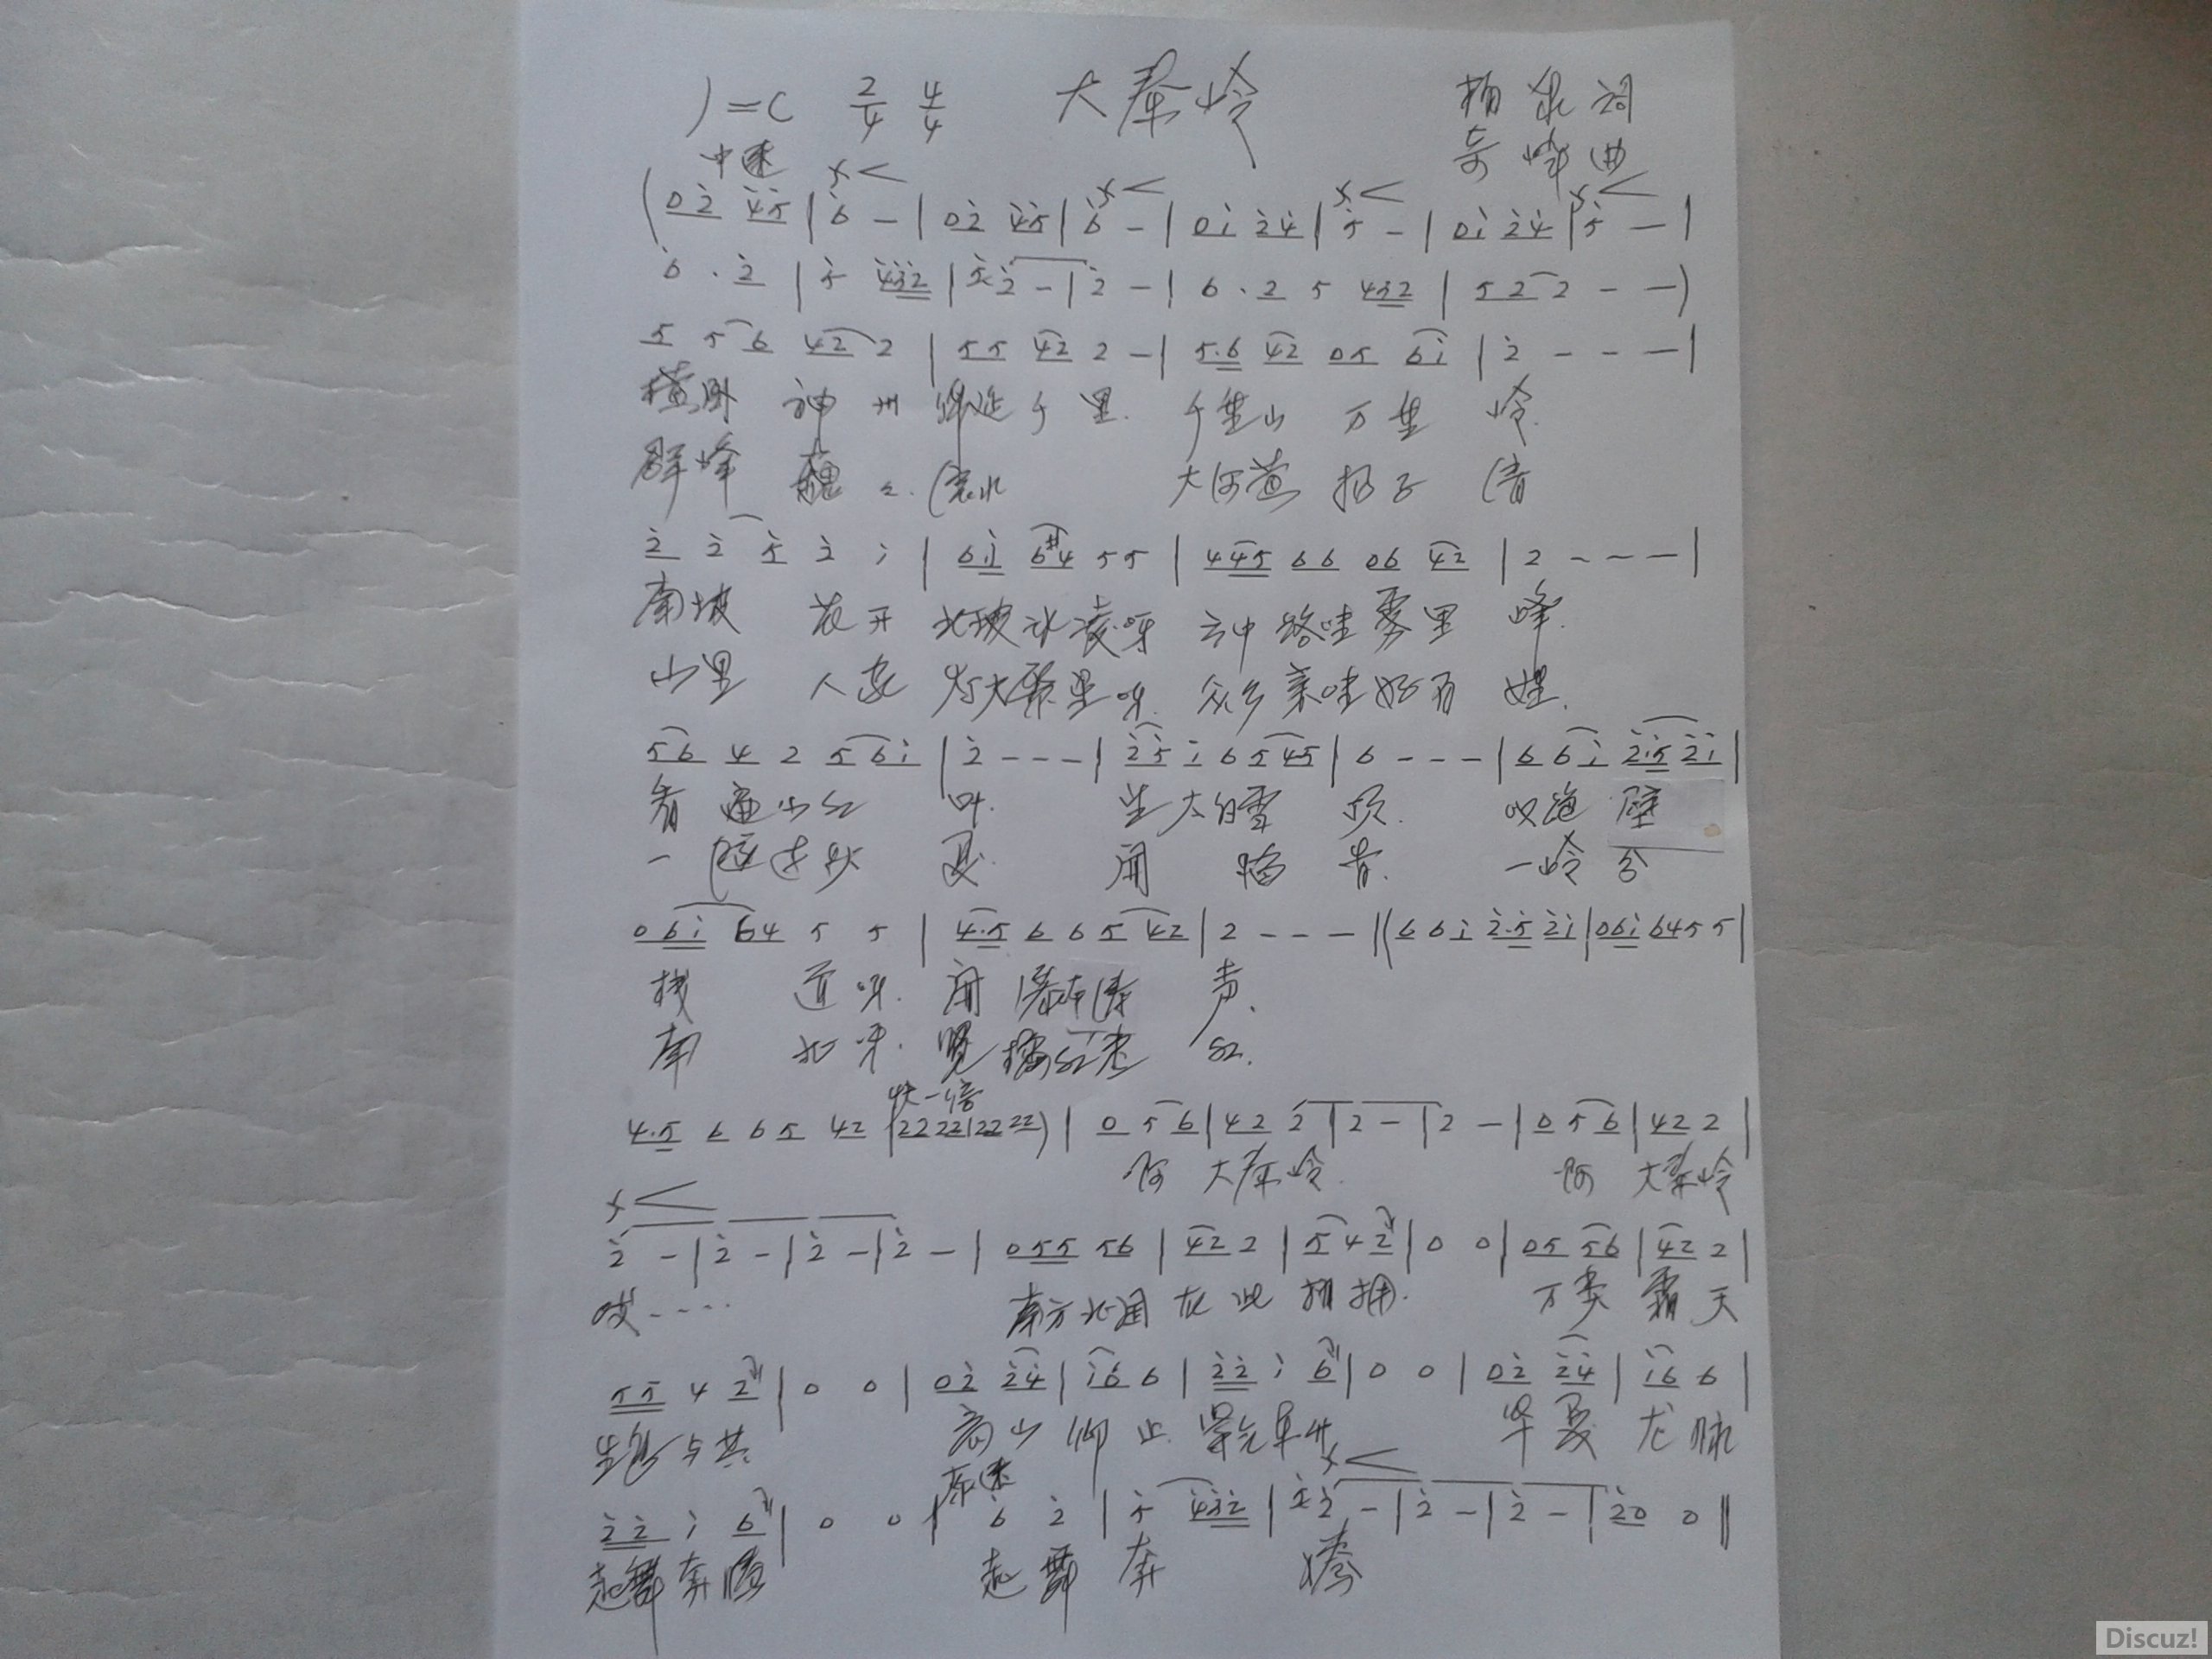 1=C 2/4 4/4 大秦岭 词
中速 奇峰曲
(0 2̇ 4̇ 5̇ | 6̇ - | 0 2̇ 4̇ 5̇ | 6̇ - | 0 1̇ 2̇ 4̇ | 5̇ - | 0 1̇ 2̇ 4̇ | 5̇ - |
6̇ . 2̇ | 5̇ 4̇ 3̇ 2̇ | 5̇ 2̇ - | 2̇ - | 6 . 2 5 4 3 2 | 5 2 2 - - )
5 5 6 4 2 2 | 5 5 4 2 2 - | 5 . 6 4 2 0 5 6 1̇ | 2̇ - - - |
横卧 神州 绵延千里. 千里山 万里 岭.
群峰 巍 大河 扬子 清
2̇ 2̇ 5̇ 2̇ 1̇ | 6 1̇ 6 #4 5 5 | 4 4 5 6 6 0 6 4 2 | 2 - - - |
南坡 花开 北坡冰凌呀 云中路哇雾里 峰.
山里 人家 里呀. 众乡亲哇好百 姓.
5 6 4 2 5 6 1̇ | 2̇ - - - | 2̇ 5̇ 1̇ 6 5 4 5 | 6 - - - | 6 6 1̇ 2̇ . 5̇ 2̇ 1̇ |
看遍山红 叶. 太白雪 顶. 叹绝 壁
一 秋 夏. 闻 稻 香. 一岭 分
0 6 1̇ 6 4 5 5 | 4 . 5 6 6 5 4 2 | 2 - - - | (6 6 1̇ 2̇ . 5̇ 2̇ 1̇ | 0 6 1̇ 6 4 5 5 |
栈 道呀. 闻瀑布涛 声.
南 北呀. 红.
快一倍
4 . 5 6 6 5 4 2 | 2 2 2 2 | 2 2 2 2 ) | 0 5 6 | 4 2 2 | 2 - | 2 - | 0 5 6 | 4 2 2 |
啊 大秦岭. 啊 大秦岭
2̇ - | 2̇ - | 2̇ - | 2̇ - | 0 5 5 5 6 | 4 2 2 | 5 4 2 | 0 0 | 0 5 5 6 | 4 2 2 |
哎.... 南方北国 在此 相拥. 万类 霜天
5 5 4 2 | 0 0 | 0 2̇ 2̇ 4̇ | 1̇ 6 6 | 2̇ 2̇ 1̇ 6 | 0 0 | 0 2̇ 2̇ 4̇ | 1̇ 6 6 |
生息与共. 高山仰止. 华夏 龙脉
原速
2̇ 2̇ 1̇ 6 | 0 0 | 6̇ 2̇ | 5̇ 4̇ 3̇ 2̇ | 5̇ 2̇ - | 2̇ - | 2̇ - | 2̇ 0 0 ‖
起舞奔腾 起舞 奔 腾
Discuz!